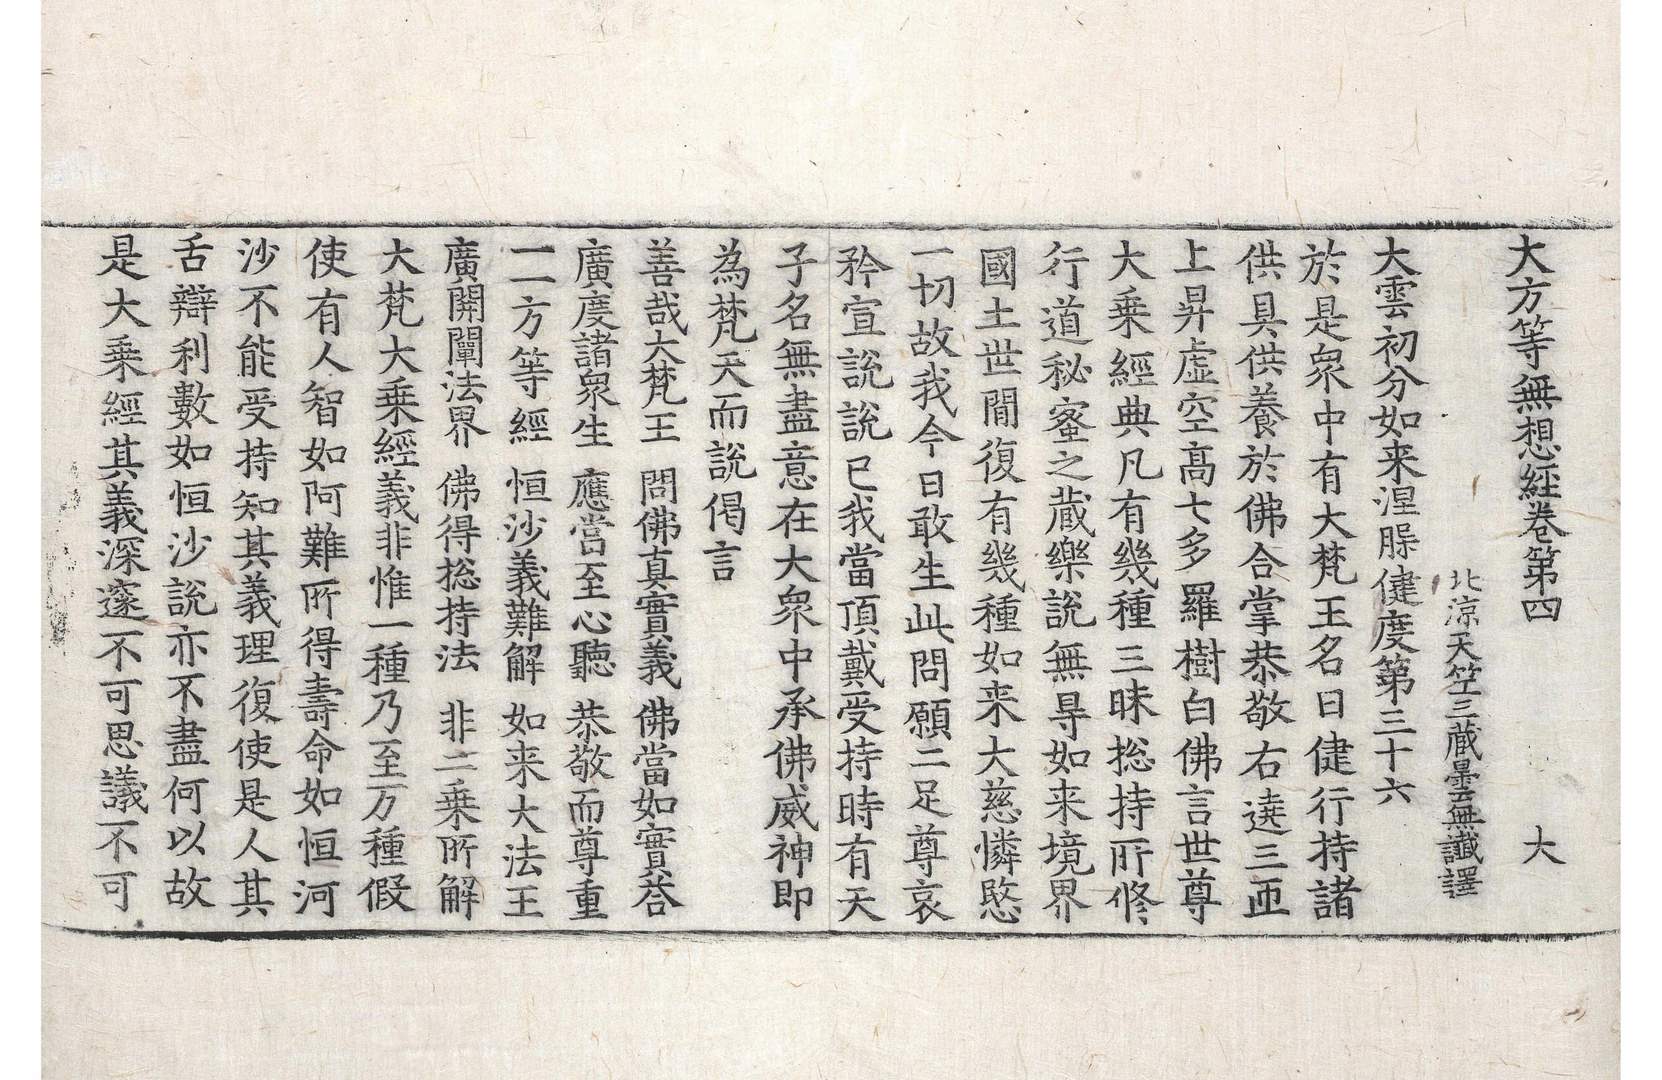 大方等無想經卷第四　大
北涼天竺三藏曇無讖譯
大雲初分如来涅槃健度第三十六
於是衆中有大梵王名曰健行持諸
供具供養於佛合掌恭敬右遶三匝
上昇虛空高七多羅樹白佛言世尊
大乗經典凡有幾種三昧捴持所修
行道秘蜜之藏樂說無㝵如来境界
國土世閒復有幾種如来大慈憐愍
一切故我今日敢生此問願二足尊哀
矜宣説説已我當頂戴受持時有天
子名無盡意在大衆中承佛威神即
為梵天而說偈言
善哉大梵王　問佛真實義　佛當如實荅
廣度諸衆生　應當至心聽　恭敬而尊重
一一方等經　恒沙義難解　如来大法王
廣開闡法界　佛得捴持法　非二乗所解
大梵大乗經義非惟一種乃至万種假
使有人智如阿難所得壽命如恒河
沙不能受持知其義理復使是人其
舌辯利數如恒沙説亦不盡何以故
是大乗經其義深邃不可思議不可